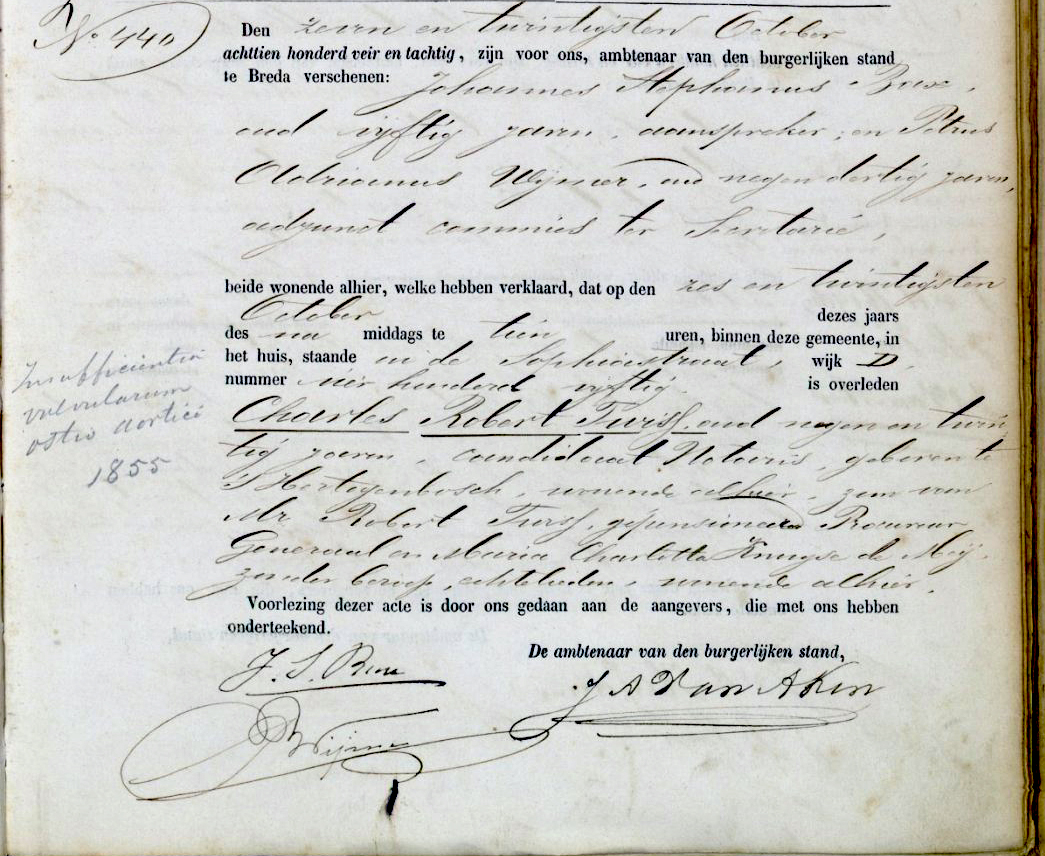 No 440
Den zeven en twintigsten October
achttien honderd veir en tachtig, zijn voor ons, ambtenaar van den burgerlijken stand
te Breda verschenen: Johannes Stephanus
oud vijftig jaren, aanspreker, en Petrus
Adrianus Wijmer, oud negen dertig jaren,
adjunct commies ter Secretarie,
beide wonende alhier, welke hebben verklaard, dat op den zes en twintigsten
October dezes jaars
des na middags te tien uren, binnen deze gemeente, in
het huis, staande in de Sophiastraat, wijk D,
nummer vier honderd vijftig is overleden
Charles Robert oud negen en twin
tig jaren, candidaat Notaris, geboren te
's Hertogenbosch, wonende alhier, zoon van
Mr Robert gepensioneerd Procureur
Generaal en Maria Charlotta de
zonder beroep, echtelieden, wonende alhier.
Voorlezing dezer acte is door ons gedaan aan de aangevers, die met ons hebben
onderteekend.
De ambtenaar van den burgerlijken stand,
J. S.
J A Van Aken
Wijmer
Insufficientia
valvularum
ostii aortici
1855